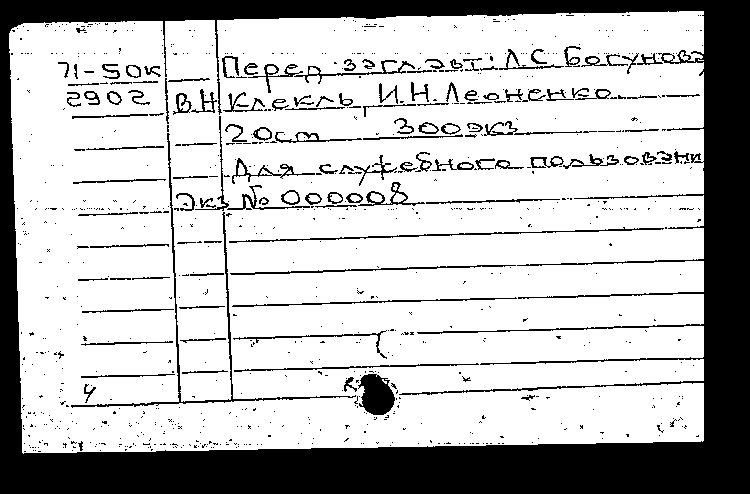 71-50к Перед загл. авт: Л.С. Богунова
2902 В.Н. Клекль, И.Н. Леоненко.
20cm 300экз
Для служебного пользовани
Экз № 000008
4